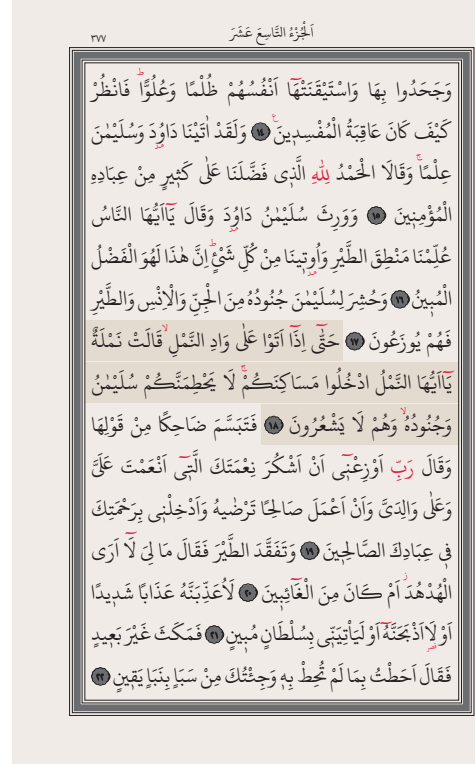 اَلْجُزْءُ التَّاسِعَ عَشَرَ
٣٧٧
وَجَحَدُوا بِهَا وَاسْتَيْقَنَتْهَٓا اَنْفُسُهُمْ ظُلْمًا وَعُلُوًّاۜ فَانْظُرْ
كَيْفَ كَانَ عَاقِبَةُ الْمُفْسِد۪ينَ۟ ١٤ وَلَقَدْ اٰتَيْنَا دَاوُ۫دَ وَسُلَيْمٰنَ
عِلْمًاۚ وَقَالَا الْحَمْدُ لِلّٰهِ الَّذ۪ي فَضَّلَنَا عَلٰى كَث۪يرٍ مِنْ عِبَادِهِ
الْمُؤْمِن۪ينَ ١٥ وَوَرِثَ سُلَيْمٰنُ دَاوُ۫دَ وَقَالَ يَٓااَيُّهَا النَّاسُ
عُلِّمْنَا مَنْطِقَ الطَّيْرِ وَاُو۫ت۪ينَا مِنْ كُلِّ شَيْءٍۜ اِنَّ هٰذَا لَهُوَ الْفَضْلُ
الْمُب۪ينُ ١٦ وَحُشِرَ لِسُلَيْمٰنَ جُنُودُهُ مِنَ الْجِنِّ وَالْاِنْسِ وَالطَّيْرِ
فَهُمْ يُوزَعُونَ ١٧ حَتّٰٓى اِذَٓا اَتَوْا عَلٰى وَادِ النَّمْلِۙ قَالَتْ نَمْلَةٌ
يَٓااَيُّهَا النَّمْلُ ادْخُلُوا مَسَاكِنَكُمْۚ لَا يَحْطِمَنَّكُمْ سُلَيْمٰنُ
وَجُنُودُهُۙ وَهُمْ لَا يَشْعُرُونَ ١٨ فَتَبَسَّمَ ضَاحِكًا مِنْ قَوْلِهَا
وَقَالَ رَبِّ اَوْزِعْن۪ٓي اَنْ اَشْكُرَ نِعْمَتَكَ الَّت۪ٓي اَنْعَمْتَ عَلَيَّ
وَعَلٰى وَالِدَيَّ وَاَنْ اَعْمَلَ صَالِحًا تَرْضٰيهُ وَاَدْخِلْن۪ي بِرَحْمَتِكَ
ف۪ي عِبَادِكَ الصَّالِح۪ينَ ١٩ وَتَفَقَّدَ الطَّيْرَ فَقَالَ مَا لِيَ لَٓا اَرَى
الْهُدْهُدَۘ اَمْ كَانَ مِنَ الْغَٓائِب۪ينَ ٢٠ لَاُعَذِّبَنَّهُ عَذَابًا شَد۪يدًا
اَوْ لَا۬اَذْبَحَنَّهُٓ اَوْ لَيَأْتِيَنّ۪ي بِسُلْطَانٍ مُب۪ينٍ ٢١ فَمَكَثَ غَيْرَ بَع۪يدٍ
فَقَالَ اَحَطْتُ بِمَا لَمْ تُحِطْ بِه۪ وَجِئْتُكَ مِنْ سَبَاٍ بِنَبَاٍ يَق۪ينٍ ٢٢